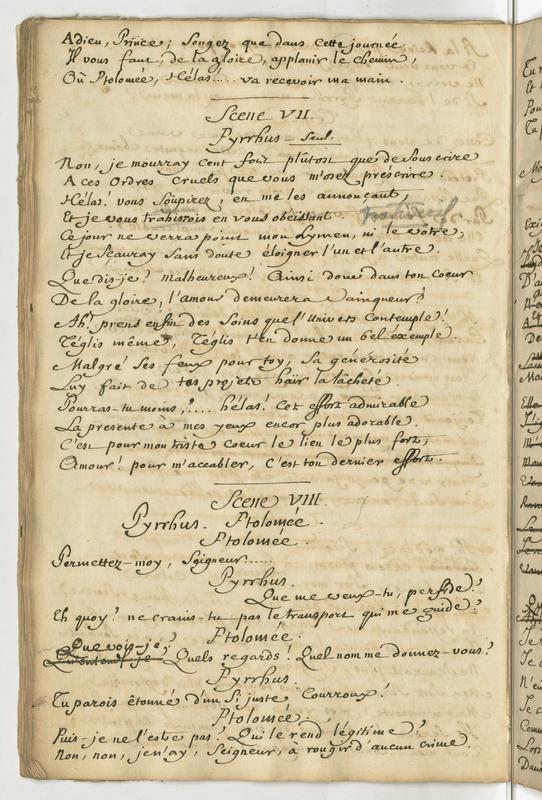 Adieu, Prince; Songez que dans cette journée
Il vous faut, de la gloire, applanir le chemin,
Où Ptolomée, Hélas!.... va recevoir ma main.
Scene VII.
Pyrrhus Seul.
Non, je mourray cent fois plûtost que de souscrire
A ces Ordres cruels que vous m'osez prescrire.
Hélas! vous Soûpirez, en me les annonçant,
Et je vous trahirois en vous obéissant
Ce jour ne verra point mon hymen, ni le vôtre;
Et je sçauray Sans doute éloigner l'un et l'autre.
Que dis-je? malheureux! Ainsi donc dans ton coeur
De la gloire, l'amour demeurera Vainqueur?
Ah! prens enfin des Soins que l'Univers Contemple!
Téglis même, Téglis t'en donne un bel exemple.
Malgré Ses feux pour toy, Sa générosité
Luy fait de tes projets haïr la lâcheté.
Pourras-tu moins?.... hélas! Cet effort admirable
La presente à mes yeux encor plus adorable.
C'est pour mon triste coeur le lien le plus fort;
Amour! pour m'accabler, C'est ton dernier effort.
Scene VIII.
Pyrrhus. Ptolomée.
Ptolomée.
Permettez-moy, Seigneur.....
Pyrrhus.
Que me veux-tu, perfide?
Eh quoy? ne crains-tu pas le transport qui me guide?
Ptolomée.
Que vois-je?
Quels regards! Quel nom me donnez-vous?
Pyrrhus.
Tu parois étonné d'un Si juste Courroux!
Ptolomée.
Puis-je ne l'estre pas? Qui le rend légitime?
Non, non, je n'ay, Seigneur, à rougir d'aucun crime.